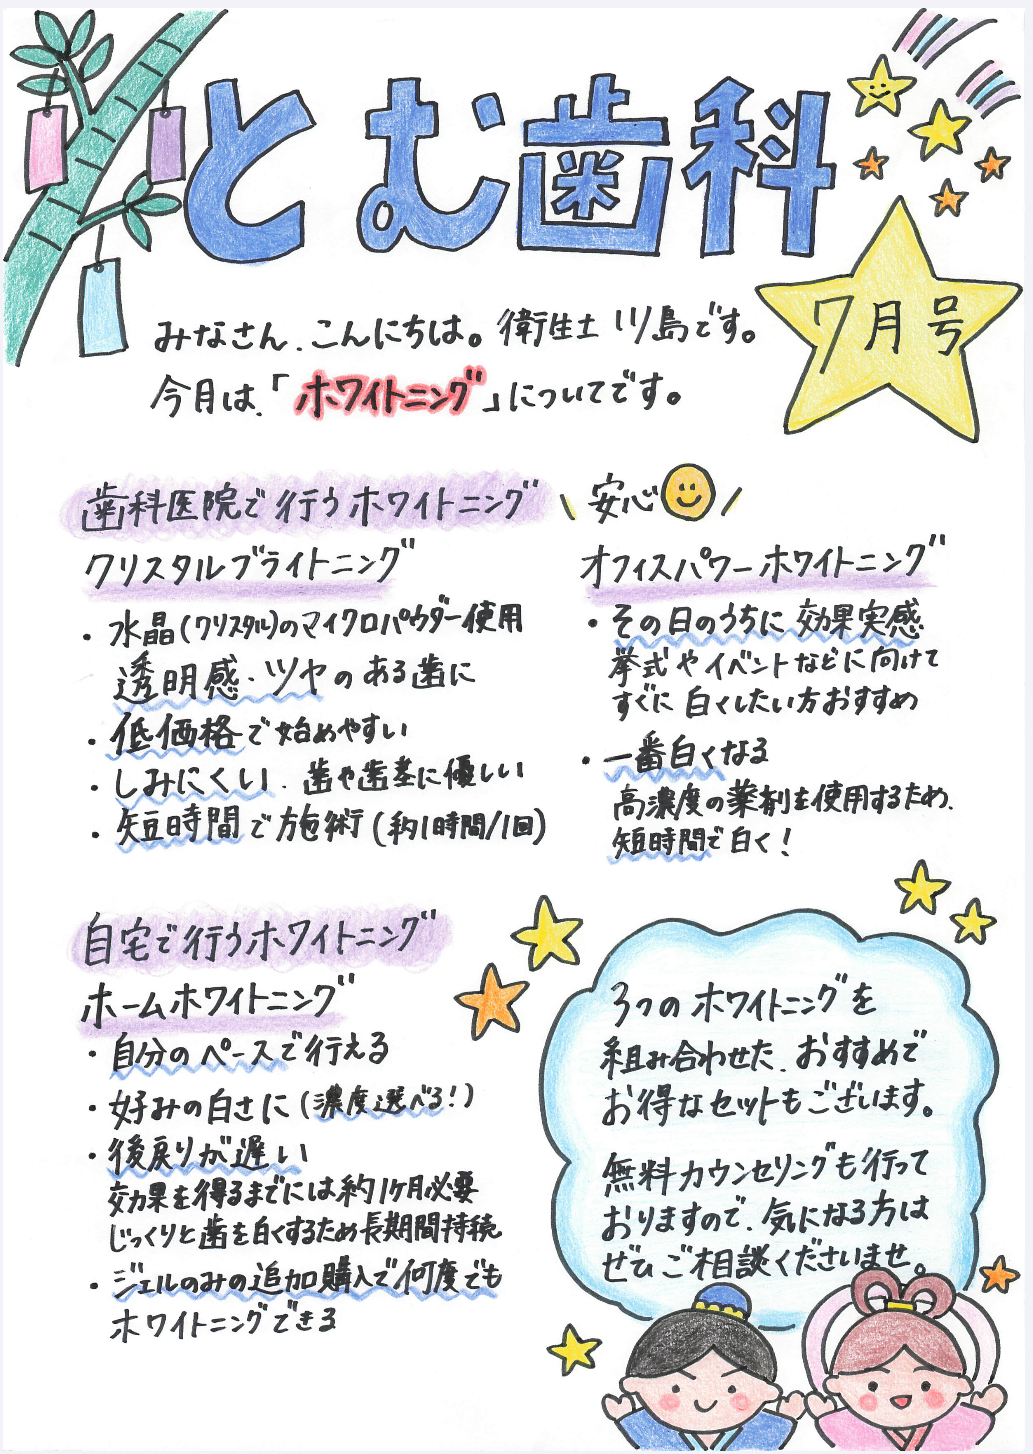 とむ歯科
7月号
みなさん、こんにちは。衛生士 川島です。
今月は、「ホワイトニング」についてです。
歯科医院で行うホワイトニング
安心
クリスタルブライトニング
・水晶(クリスタル)のマイクロパウダー使用
透明感・ツヤのある歯に
・低価格で始めやすい
・しみにくい、歯や歯茎に優しい
・短時間で施術(約1時間/1回)
オフィスパワーホワイトニング
・その日のうちに効果実感
挙式やイベントなどに向けて
すぐに白くしたい方おすすめ
・一番白くなる
高濃度の薬剤を使用するため、
短時間で白く!
自宅で行うホワイトニング
ホームホワイトニング
・自分のペースで行える
・好みの白さに(濃度選べる!)
・後戻りが遅い
効果を得るまでには約1ヶ月必要
じっくりと歯を白くするため長期間持続
・ジェルのみの追加購入で何度でも
ホワイトニングできる
3つのホワイトニングを
組み合わせた、おすすめで
お得なセットもございます。
無料カウンセリングも行って
おりますので、気になる方は
ぜひご相談くださいませ。